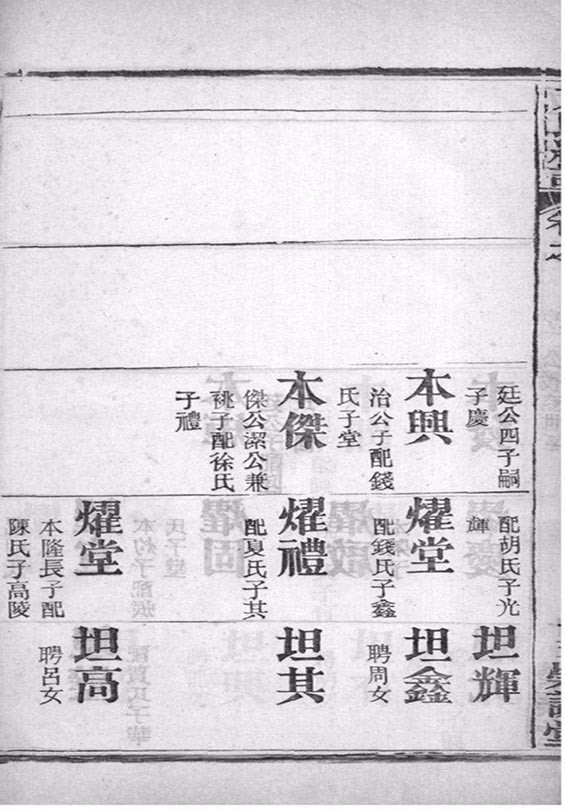 廷公四子嗣
子慶
本興
治公子配錢
氏子堂
本傑
傑公潔公兼
祧子配徐氏
子禮
配胡氏子光
輝
燿堂
配錢氏子鑫
燿禮
配夏氏子其
燿堂
本隆長子配
陳氏子高陵
坦輝
坦鑫
聘周女
坦其
坦高
聘呂女